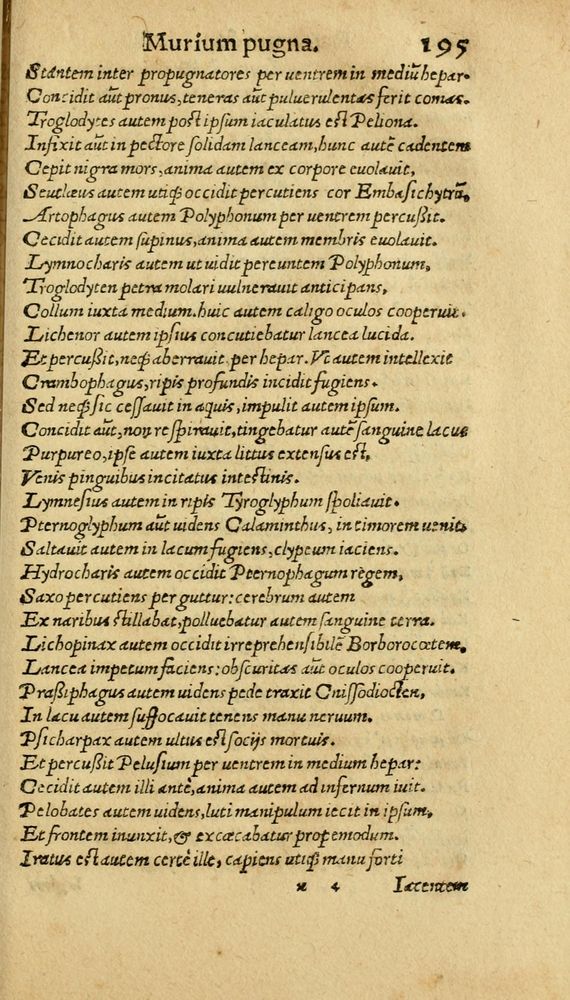 Murium pugna. 195
Stantem inter propugnatores per uentrem in mediũ hepar.
Concidit aũt pronus, teneras aũt puluerulentas ferit comas.
Troglodytes autem post ipsum iaculatus est Peliona.
Infixit aũt in pectore solidam lanceam, hunc autẽ cadentem
Cepit nigra mors, anima autem ex corpore euolauit,
Seutlæus autem utiq; occidit percutiens cor Embasichytrũ,
Artophagus autem Polyphonum per uentrem percußit.
Cecidit autem supinus, anima autem membris euolauit.
Lymnocharis autem ut uidit pereuntem Polyphonum,
Troglodyten petra molari uulnerauit anticipans,
Collum iuxta medium. huic autem caligo oculos cooperuit.
Lichenor autem ipsius concutiebatur lancea lucida.
Et percußit, neq; aberrauit per hepar. Vt autem intellexit
Crambophagus, ripis profundis incidit fugiens.
Sed neq; sic cessauit in aquis, impulit autem ipsum.
Concidit aũt, non respirauit, tingebatur autẽ sanguine lacus
Purpureo, ipse autem iuxta littus extensus est,
Venis pinguibus incitatus intestinis.
Lymnesius autem in ripis Tyroglyphum spoliauit.
Pternoglyphum aũt uidens Calaminthus, in timorem uenit,
Saltauit autem in lacum fugiens, clypeum iaciens.
Hydrocharis autem occidit Pternophagum règem,
Saxo percutiens per guttur: cerebrum autem
Ex naribus stillabat, polluebatur autem sanguine terra.
Lichopinax autem occidit irreprehensibilẽ Borborocœtem,
Lancea impetum faciens: obscuritas aũt oculos cooperuit.
Praßiphagus autem uidens pede traxit Cnissodiocten,
In lacu autem suffocauit tenens manu neruum.
Psicharpax autem ultus est socijs mortuis.
Et percußit Pelusium per uentrem in medium hepar:
Cecidit autem illi antè, anima autem ad infernum iuit.
Pelobates autem uidens, luti manipulum iecit in ipsum,
Et frontem inunxit, & excæcabatur propemodum.
Iratus est autem certè ille, capiens utiq; manu forti
x 4 Iacentem